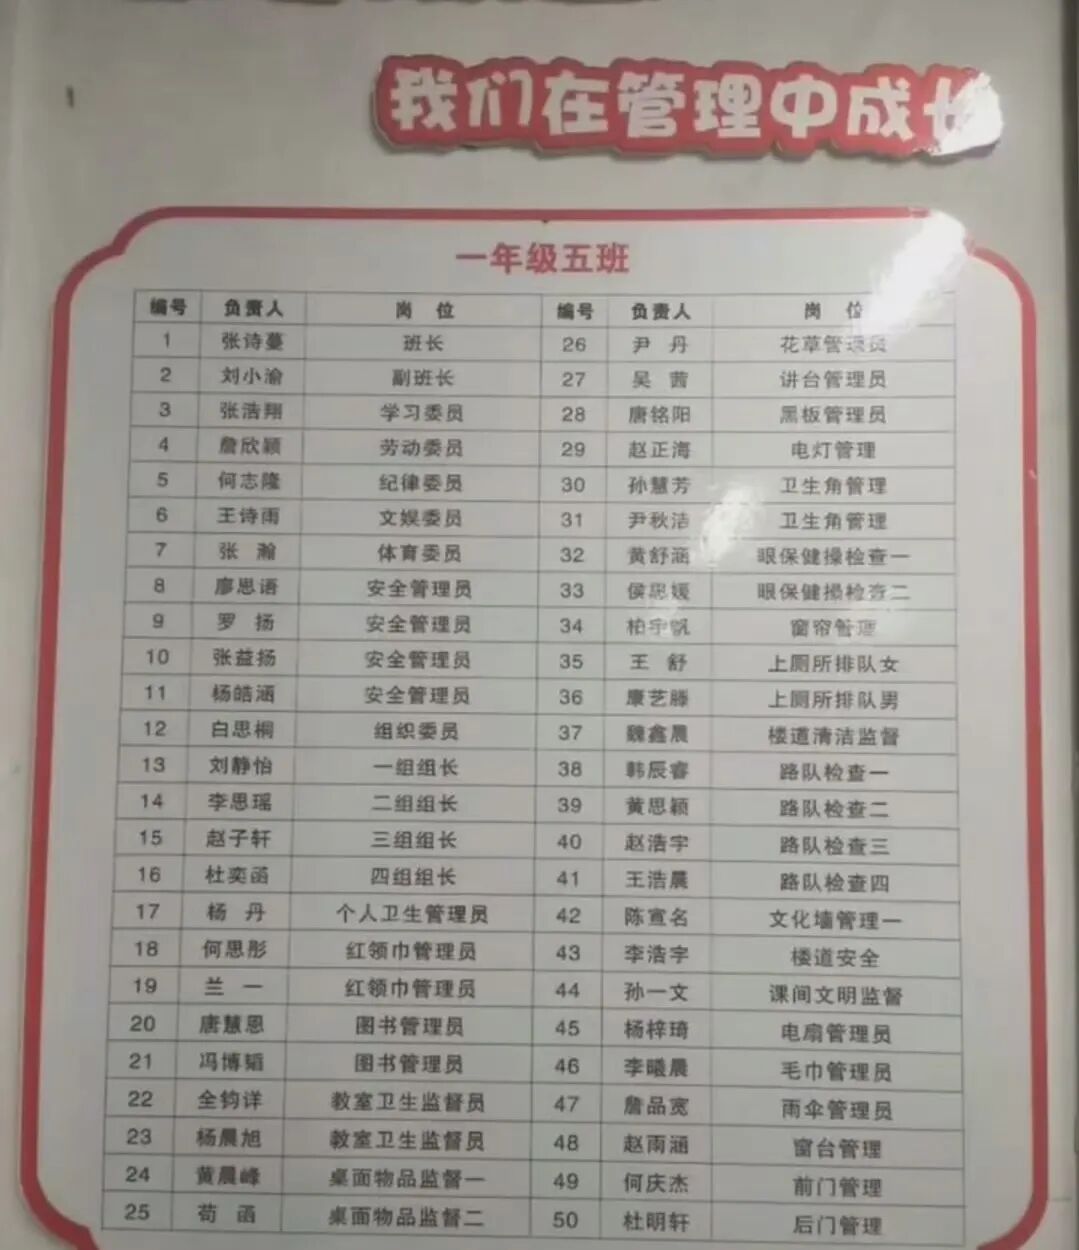 我们在管理中成长
一年级五班
编号 负责人 岗 位 编号 负责人 岗 位
1 张诗蔓 班长 26 尹 丹 花草管理员
2 刘小渝 副班长 27 吴 茜 讲台管理员
3 张浩翔 学习委员 28 唐铭阳 黑板管理员
4 詹欣颖 劳动委员 29 赵正海 电灯管理
5 何志隆 纪律委员 30 孙慧芳 卫生角管理
6 王诗雨 文娱委员 31 尹秋洁 卫生角管理
7 张 瀚 体育委员 32 黄舒涵 眼保健操检查一
8 廖思语 安全管理员 33 侯思媛 眼保健操检查二
9 罗 扬 安全管理员 34 柏宇帆 窗帘管理
10 张益扬 安全管理员 35 王 舒 上厕所排队女
11 杨皓涵 安全管理员 36 康艺滕 上厕所排队男
12 白思桐 组织委员 37 魏鑫晨 楼道清洁监督
13 刘静怡 一组组长 38 韩辰睿 路队检查一
14 李思瑶 二组组长 39 黄思颖 路队检查二
15 赵子轩 三组组长 40 赵浩宇 路队检查三
16 杜奕函 四组组长 41 王浩晨 路队检查四
17 杨 丹 个人卫生管理员 42 陈宣名 文化墙管理一
18 何思彤 红领巾管理员 43 李浩宇 楼道安全
19 兰 一 红领巾管理员 44 孙一文 课间文明监督
20 唐慧恩 图书管理员 45 杨梓琦 电扇管理员
21 冯博韬 图书管理员 46 李曦晨 毛巾管理员
22 全钧详 教室卫生监督员 47 詹品宽 雨伞管理员
23 杨晨旭 教室卫生监督员 48 赵雨涵 窗台管理
24 黄晨峰 桌面物品监督一 49 何庆杰 前门管理
25 苟 函 桌面物品监督二 50 杜明轩 后门管理